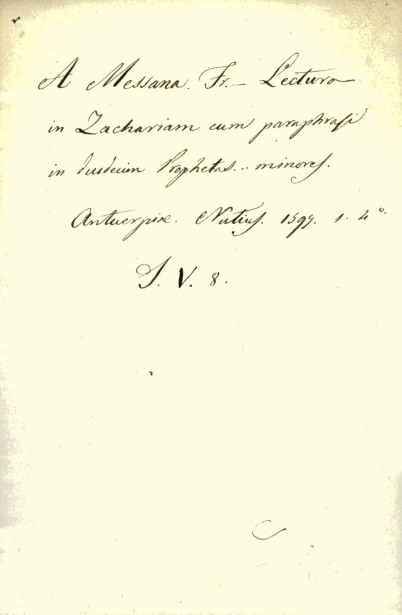 A Messana. Fr. - Lectura
in Zachariam cum paraphrasi
in duodecim Prophetas.. minores.
Antuerpiæ. Nutius. 1597. 1. 4°.
S. V. 8.